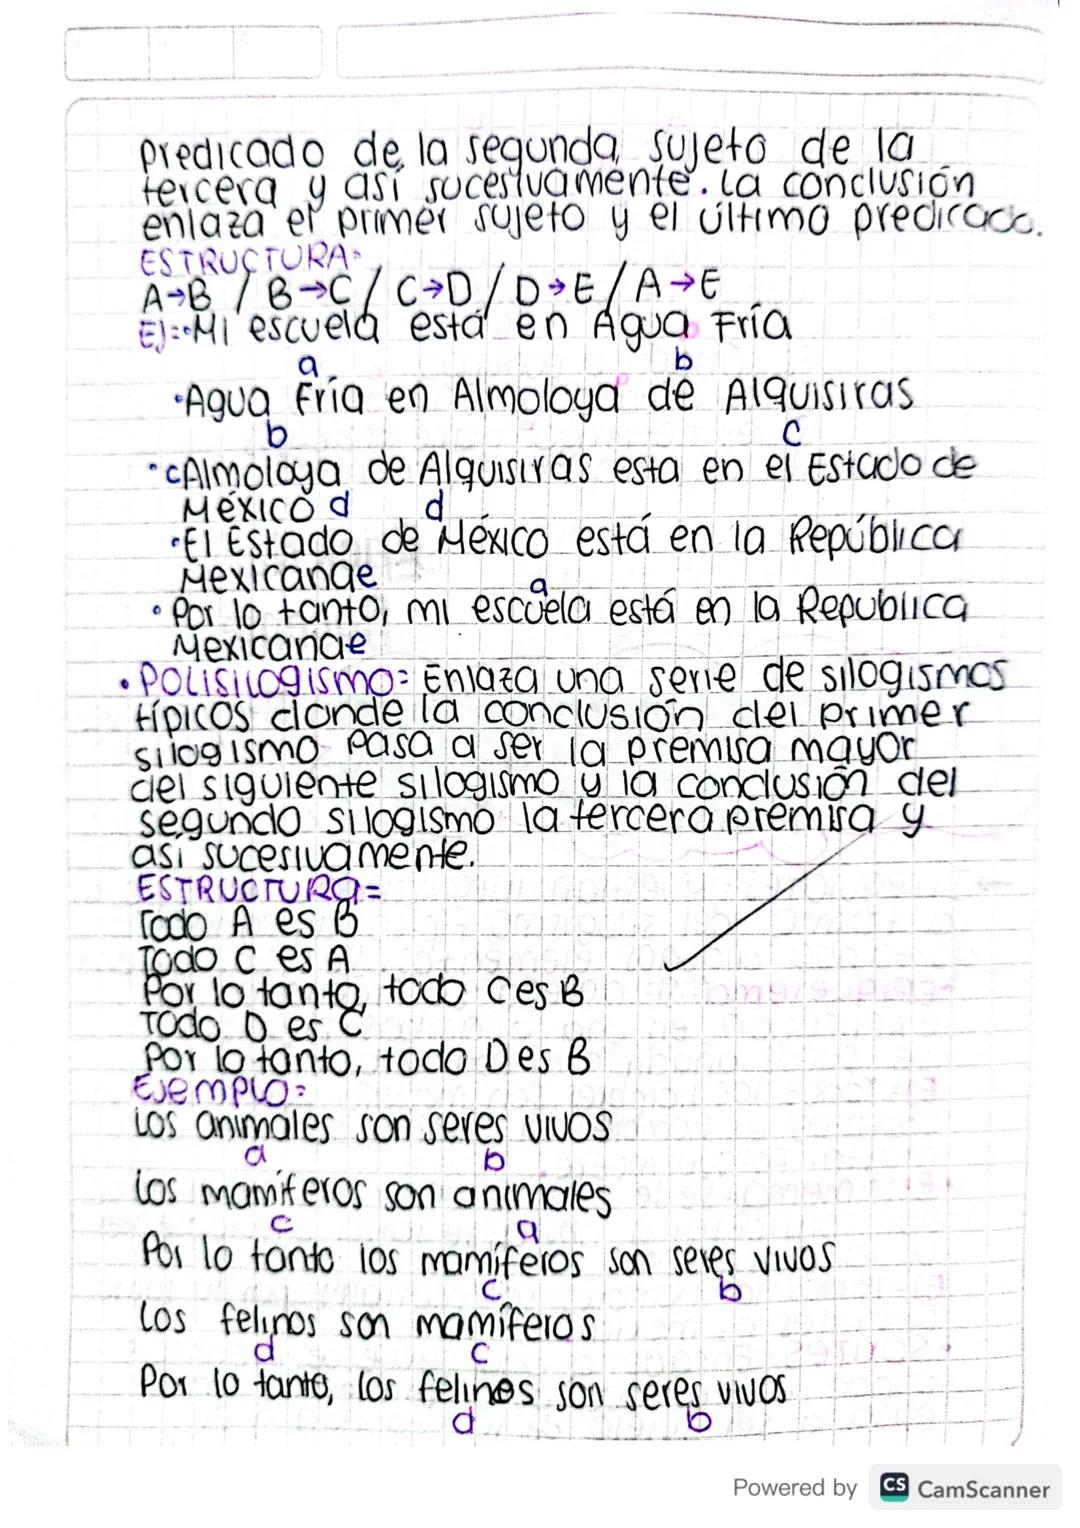 predicado de la segunda, sujeto de la
tercera y así sucesivamente. La conclusión
enlaza el primer sujeto y el último predicado.
ESTRUCTURA:
A→B / B→C / C→D / D→E / A→E
Ej: • Mi escuela está en Agua Fría
a b
• Agua Fría en Almoloya de Alquisiras
b c
• c Almoloya de Alquisiras esta en el Estado de
México d d
• El Estado de México está en la República
Mexicana e
a
• Por lo tanto, mi escuela está en la Republica
Mexicana e
• POLISILOGISMO: Enlaza una serie de silogismos
típicos donde la conclusión del primer
silogismo pasa a ser la premisa mayor
del siguiente silogismo y la conclusión del
segundo silogismo la tercera premisa y
así sucesivamente.
ESTRUCTURA=
Todo A es B
Todo C es A
Por lo tanto, todo C es B
Todo D es C
Por lo tanto, todo D es B
Ejemplo:
Los animales son seres vivos
a b
Los mamíferos son animales
c a
Por lo tanto los mamíferos son seres vivos
c b
Los felinos son mamíferos
d c
Por lo tanto, los felinos son seres vivos
d b
Powered by CS CamScanner